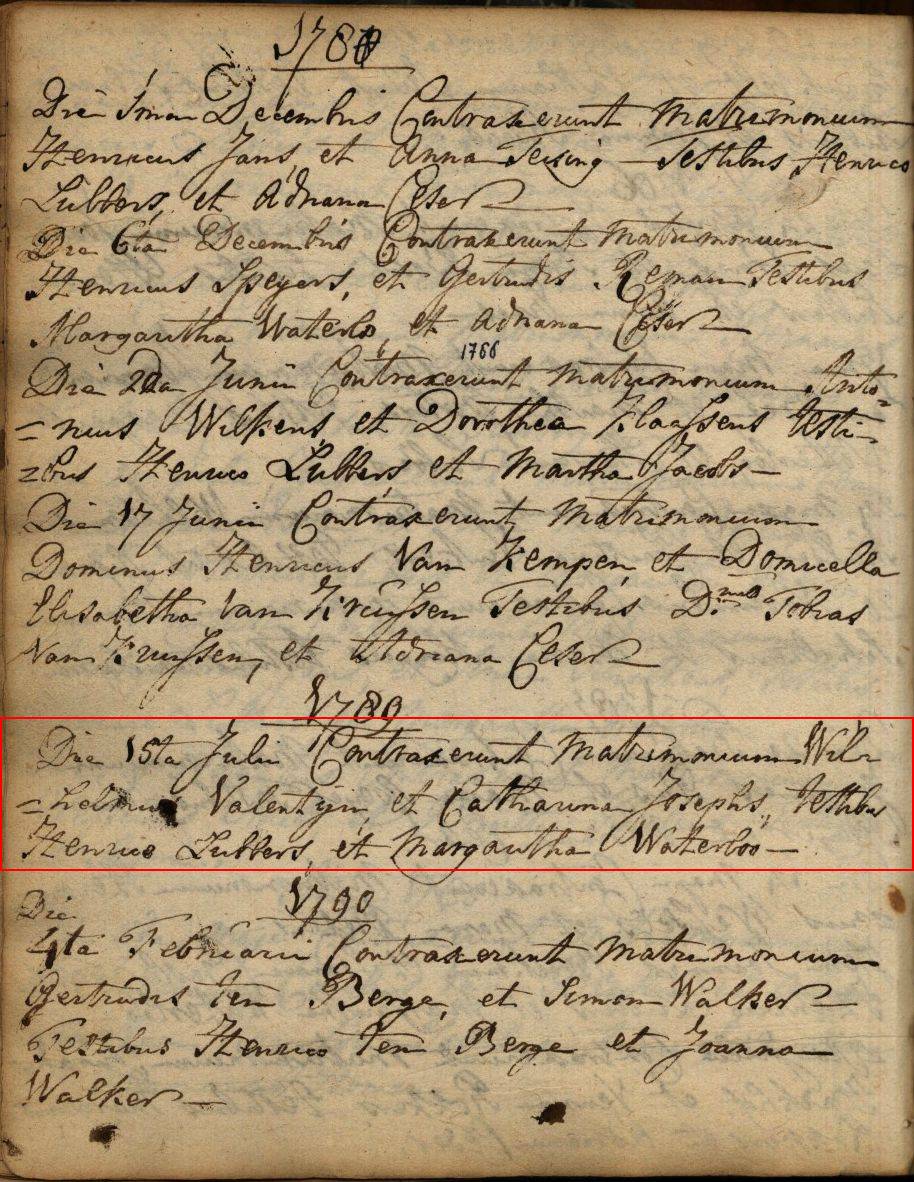 1780
Die 1ma Decembris Contraxerunt Matrimonium
Henricus Jans, et Anna Teising Testibus Henrico
Lubbers, et Adriana Ceser
Die 6ta Decembris Contraxerunt Matrimonium
Henricus Speyers, et Gertrudis Reman Testibus
Margaritha Waterlo, et Adriana Ceser
1766
Die 2da Junii Contraxerunt Matrimonium Anto=
=nius Wilkens, et Dorothea Klaassens testi=
=bus Henrico Lubbers, et Martha Jacobs
Die 17 Junii Contraxerunt Matrimonium
Dominus Henricus Van Kempen, et Domicella
Elisabetha Van Kruyssen Testibus D. Tobias
Van Kruyssen, et Adriana Ceser
1789
Die 15ta Julii Contraxerunt Matrimonium Wil=
=helmus Valentijn, et Catharina Josephs, testibus
Henrico Lubbers, et Margaritha Waterloo
1790
Die
4ta Februarii Contraxerunt Matrimonium
Gertrudis ten Berge, et Simon Walker
Testibus Henrico ten Berge et Joanna
Walker